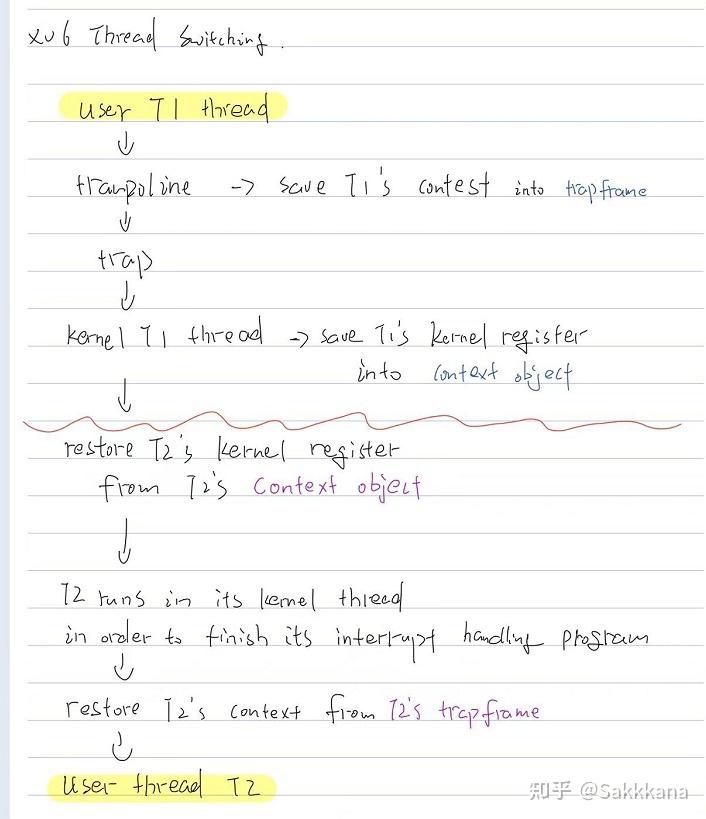 xv6 Thread Switching.
user T1 thread
↓
tranpoline -> save T1's contest into trapframe
↓
trap
↓
kernel T1 thread -> save T1's kernel register
into context object
↓
restore T2's kernel register
from T2's Context object
↓
T2 runs in its kernel thread
in order to finish its interrupt handling program
↓
restore T2's context from T2's trapframe
↓
User thread T2
知乎 @Sakkkana